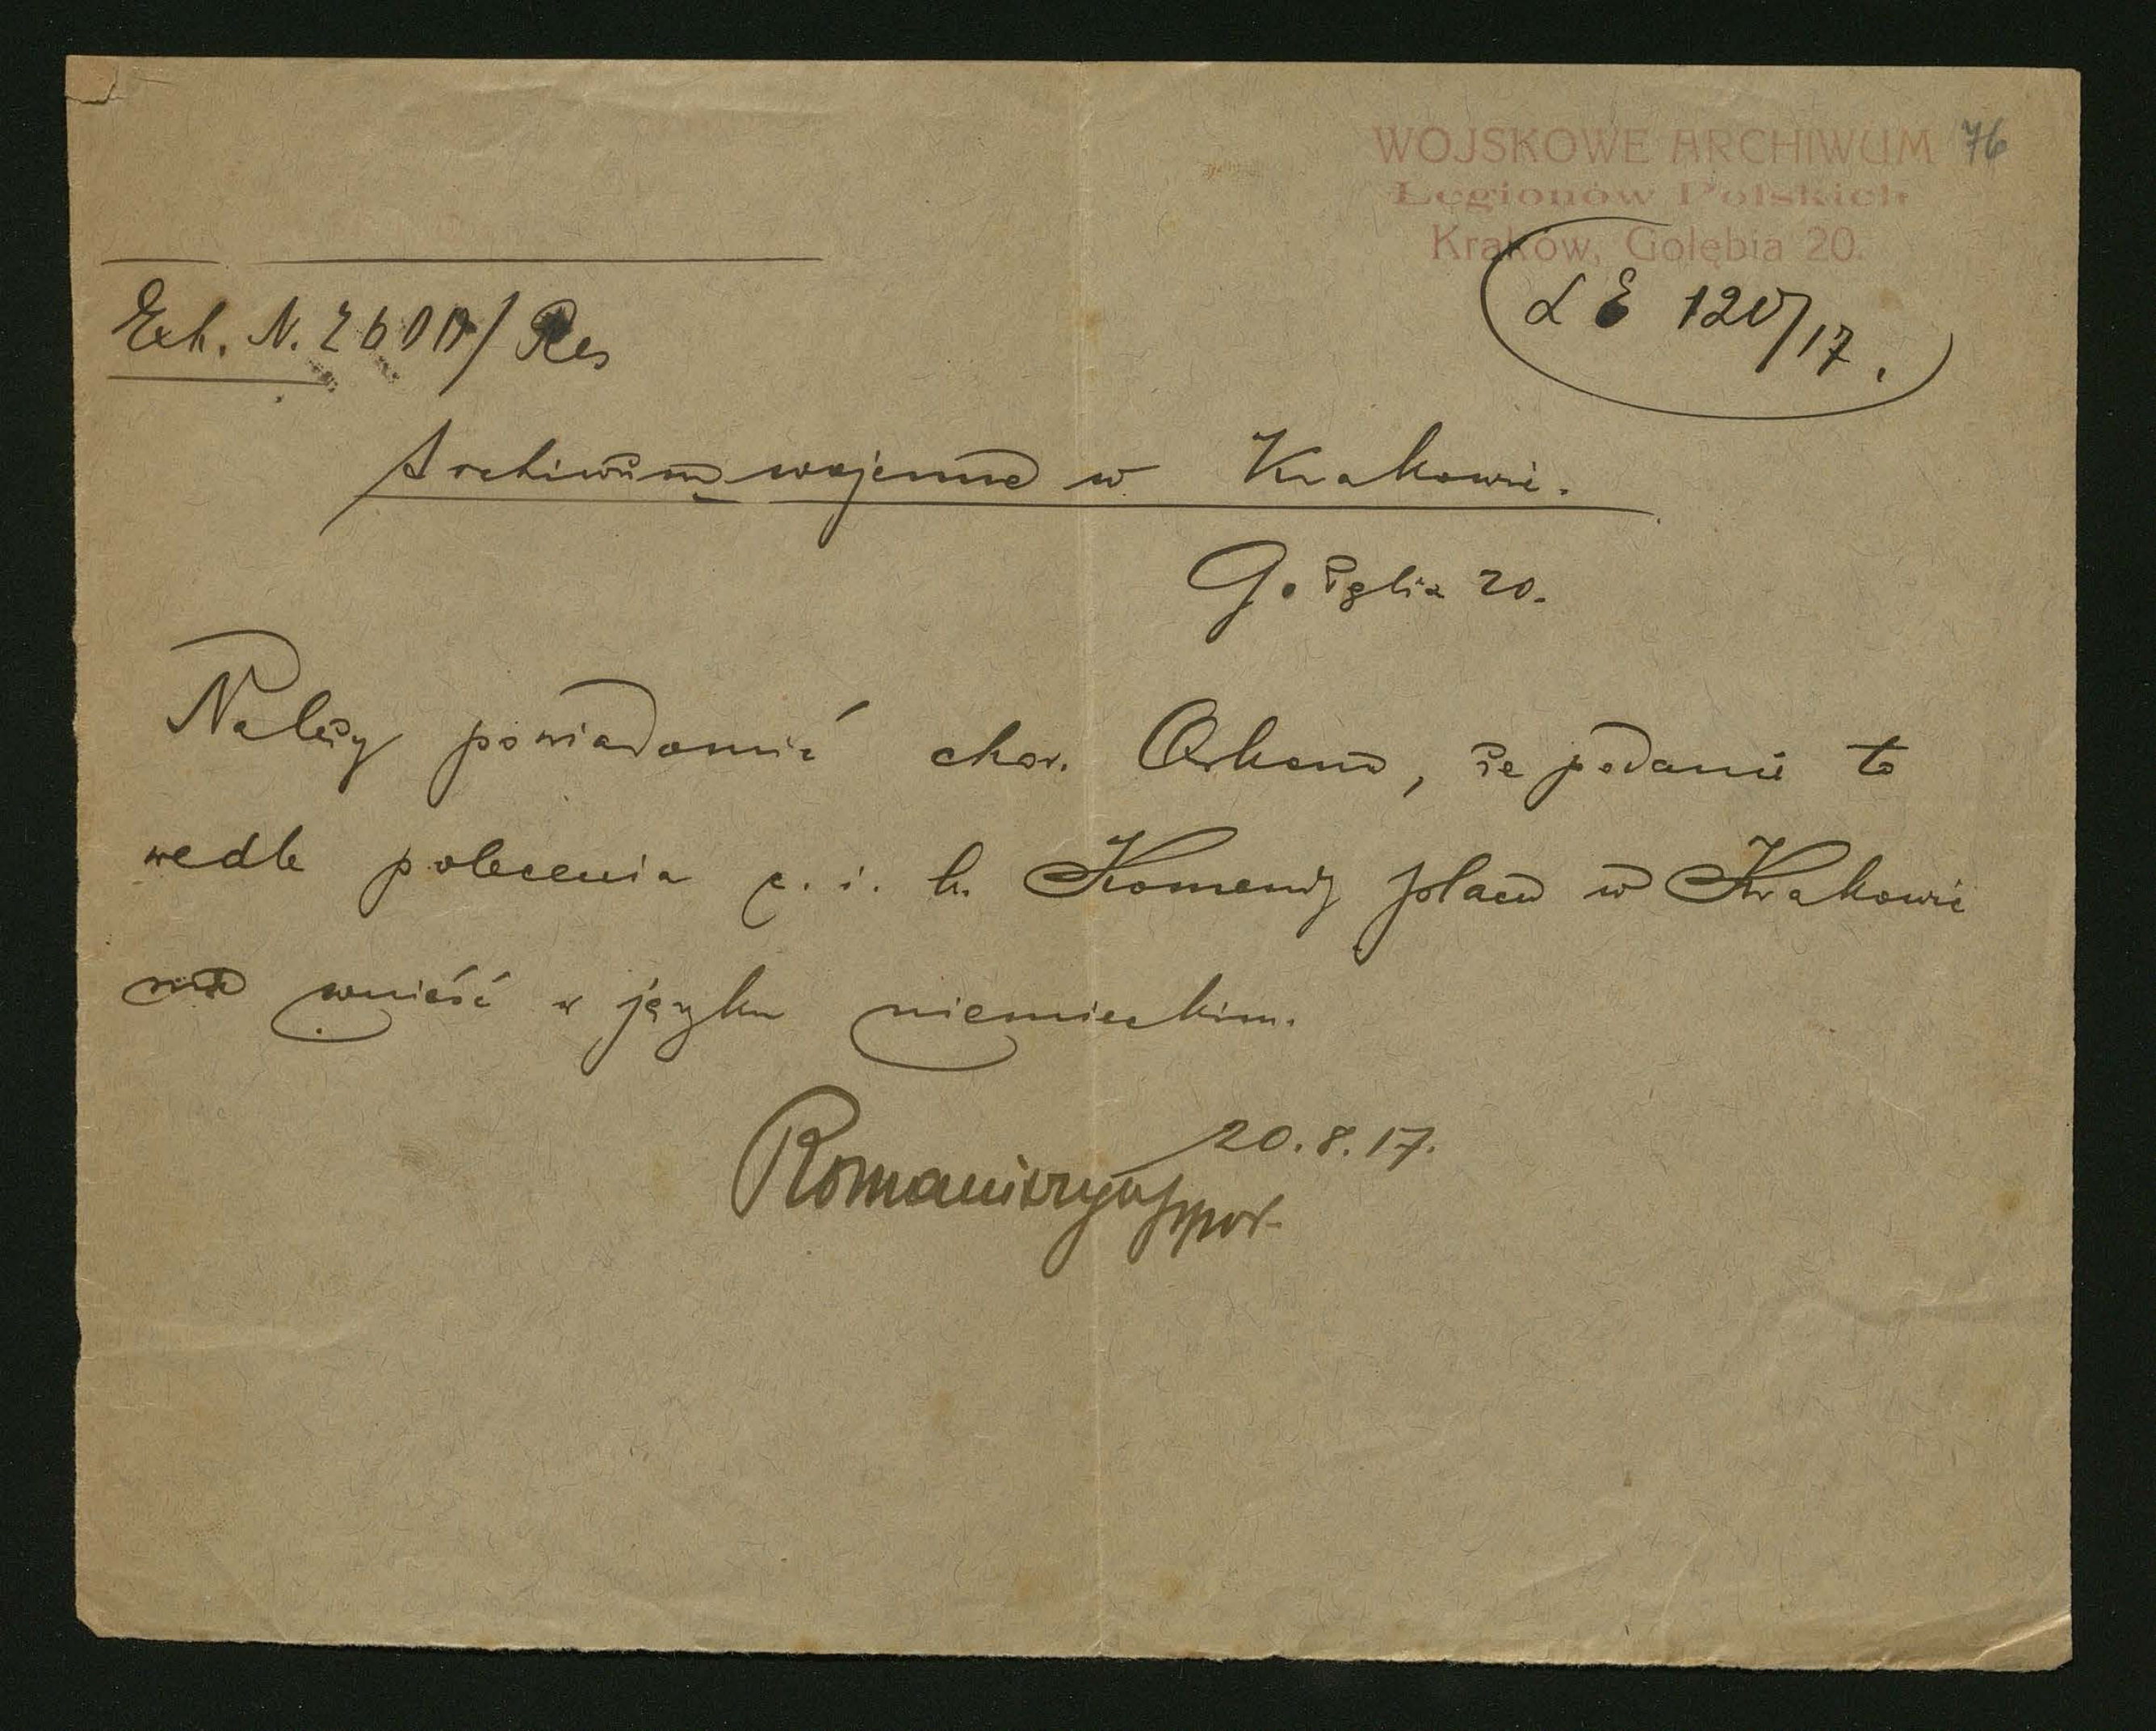 WOJSKOWE ARCHIWUM 76
Legionów Polskich
Kraków, Gołębia 20.
L E 120/17.
Exh. N. 2600/Res
Archiwum wojenne w Krakowie.
Gołębia 20.
Należy powiadomić chor. Orkana, że podanie to
wedle polecenia c. i k. Komendy placu w Krakowie
ma wnieść w języku niemieckim.
20.8.17.
Romaniszyn ppor.